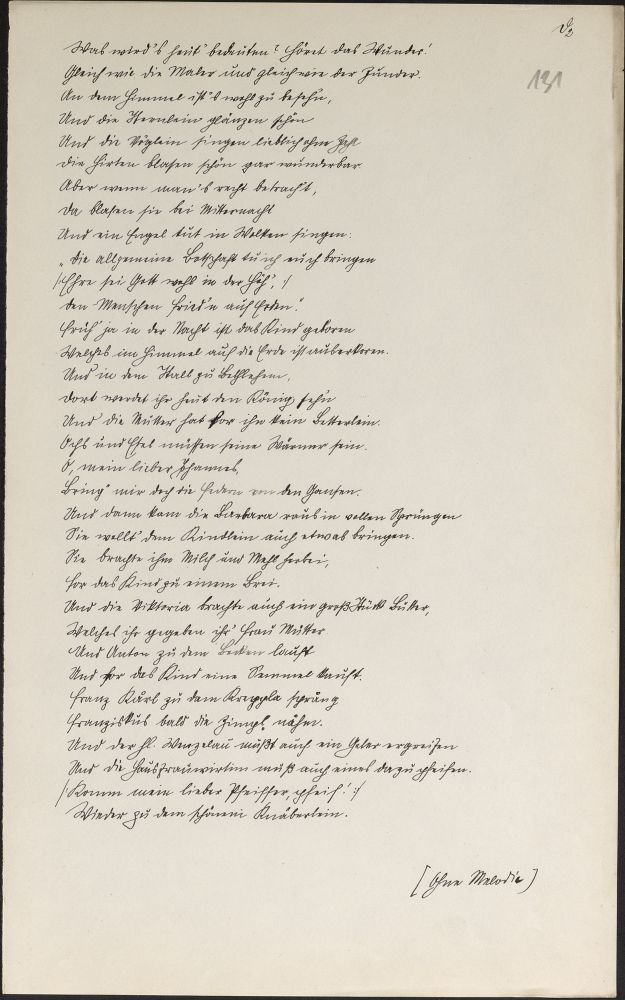 131
Was wird's heut' bedeuten? Höret das Wunder!
Gleich wie die Maler und gleich wie der Zunder.
An dem Himmel ist's wohl zu besehn,
Und die Sternlein glänzen schön
Und die Vöglein singen lieblich ohne Zahl
Die Hirten blasen schön gar wunderbar
Aber wenn man's recht betracht',
Da blasen sie bei Mitternacht
Und ein Engel tut in Wolken singen:
„Die allgemeine Botschaft tu ich euch bringen
/:Ehre sei Gott wohl in der Höh', :/
den Menschen Fried'n auf Erden."
Früh ja in der Nacht ist das Kind geboren
Welches im Himmel auf die Erde ist auserkoren.
Und in dem Stall zu Bethlehem,
Dort werdet ihr heut den König sehn
Und die Mutter hat for ihn kein Betterlein.
Ochs und Esel müssen seine Wärmer sein.
O, mein lieber Johannes,
Bring' mir doch die Federn von den Gansen.
Und dann kam die Barbara raus in vollen Sprüngen
Sie wollt' dem Kindlein auch etwas bringen.
Sie brachte ihm Milch und Mehl herbei,
for das Kind zu einem Brei.
Und die Viktoria brachte auch ein groß Stück Butter,
Welches ihr gegeben ihr' Frau Mutter
Und Anton zu dem Becken lauft
Und for das Kind eine Semmel kauft.
Franz Karl zu dem sprang
Franziskus bald die nahm.
Und der hl. Wenzelau mußt auch ein ergreifen
Und die Hausfrauwirtin muß auch eines dazu pfeifen.
/:Komm mein lieber Pfeiffer, pfeif! :/
Wieder zu dem schönen Knäberlein.
[Ohne Melodie]